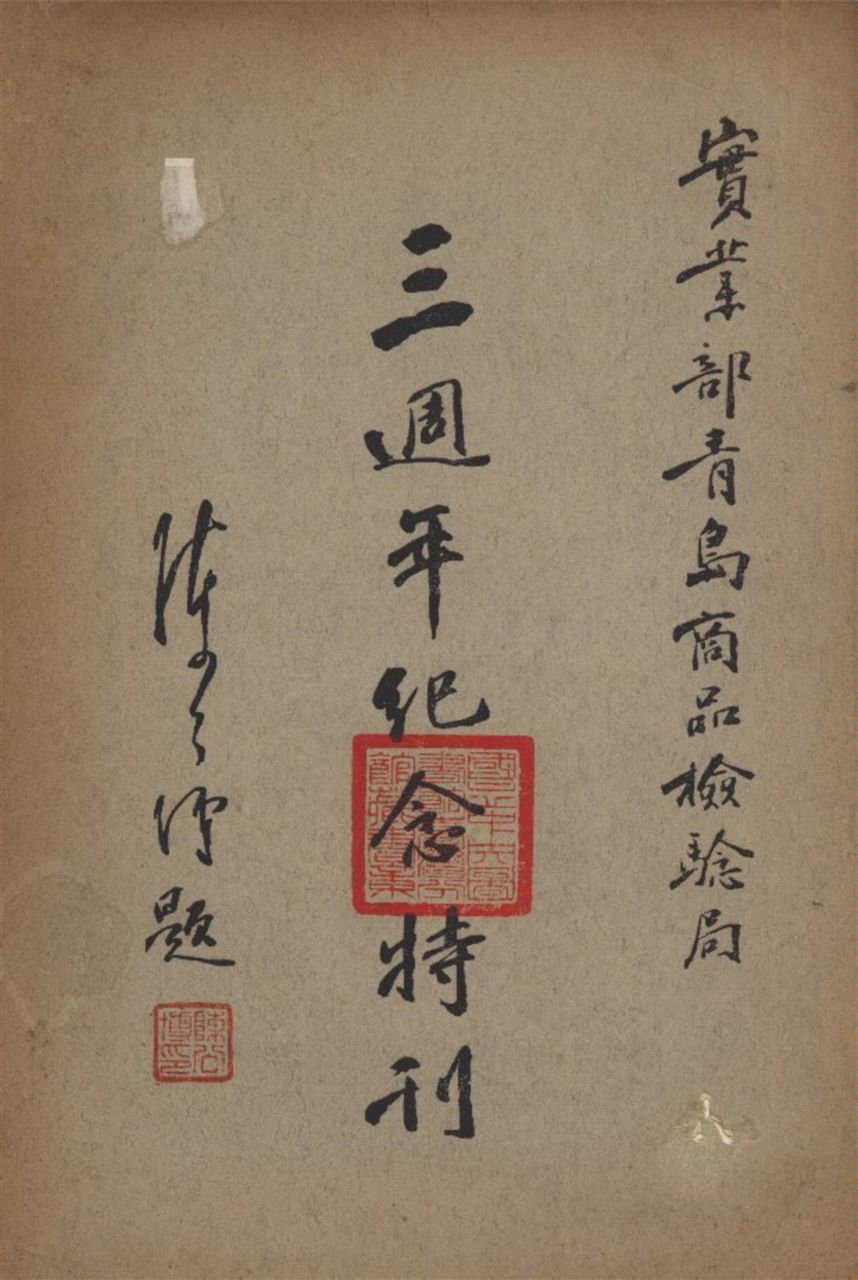 實業部青島商品檢驗局
三週年紀念特刊
陳公博題
陳公博印